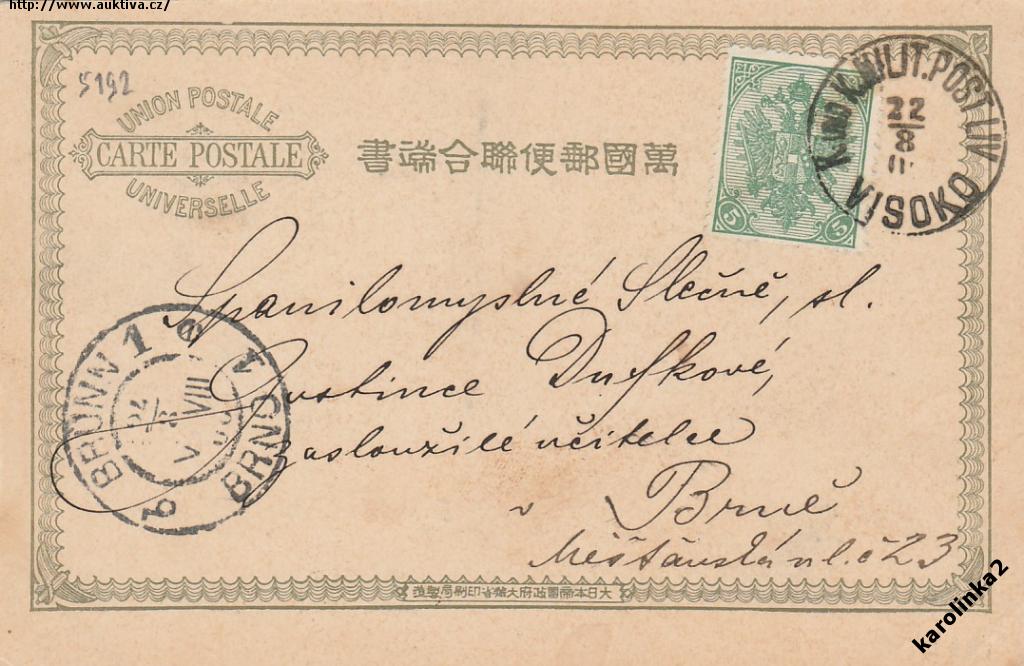 http://www.auktiva.cz/
5192
UNION POSTALE
CARTE POSTALE
UNIVERSELLE
萬國郵便聯合端書
5 5
K. UND K. MILIT. POST LIV
22
8
VISOKO
Spanilomyslné Slečně, sl.
Justince Dufkové,
zasloužilé učitelce
v Brně
Měšťanská ul. č 23
BRÜNN 1
BRNO 1
VIII
大日本帝國政府大藏省印刷局製造
karolinka2